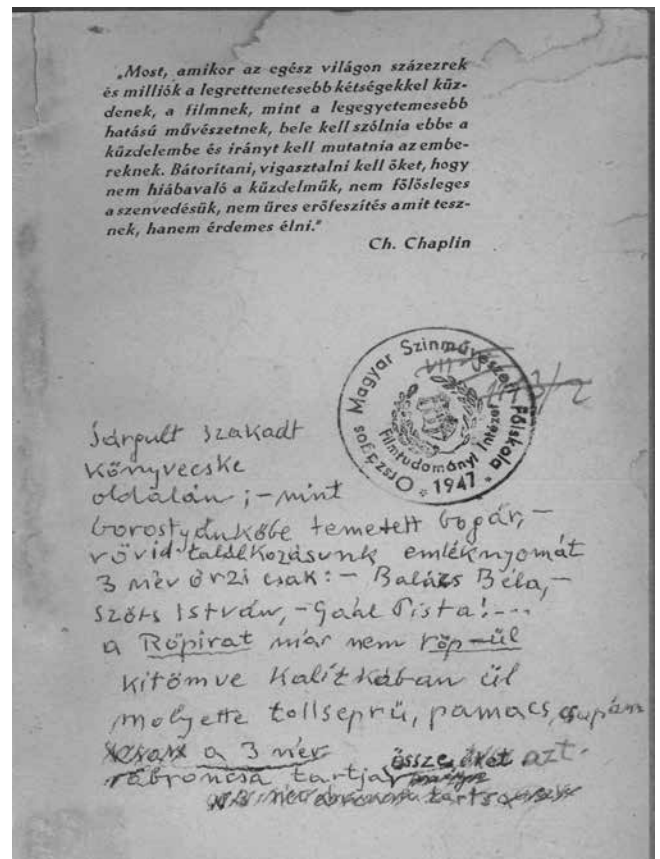 „Most, amikor az egész világon százezrek
és milliók a legrettenetesebb kétségekkel küz-
denek, a filmnek, mint a legegyetemesebb
hatású művészetnek, bele kell szólnia ebbe a
küzdelembe és irányt kell mutatnia az embe-
reknek. Bátorítani, vigasztalni kell őket, hogy
nem hiábavaló a küzdelmük, nem fölösleges
a szenvedésük, nem üres erőfeszítés amit tesz-
nek, hanem érdemes élni.“
Ch. Chaplin
Országos Magyar Szinművészeti Főiskola
Filmtudományi Intézet
* 1947 *
Sárgult szakadt
könyvecske
oldalán; – mint
borostyánkőbe temetett bogár, –
rövid találkozásunk emléknyomát
3 név őrzi csak: – Balázs Béla, –
Szőts István, – Gaál Pista! – ...
a Röpirat már nem röp-ül
kitömve Kalitkában ül
molyette tollseprű, pamacs, csupán
a 3 név
abroncsa tartja össze azt.